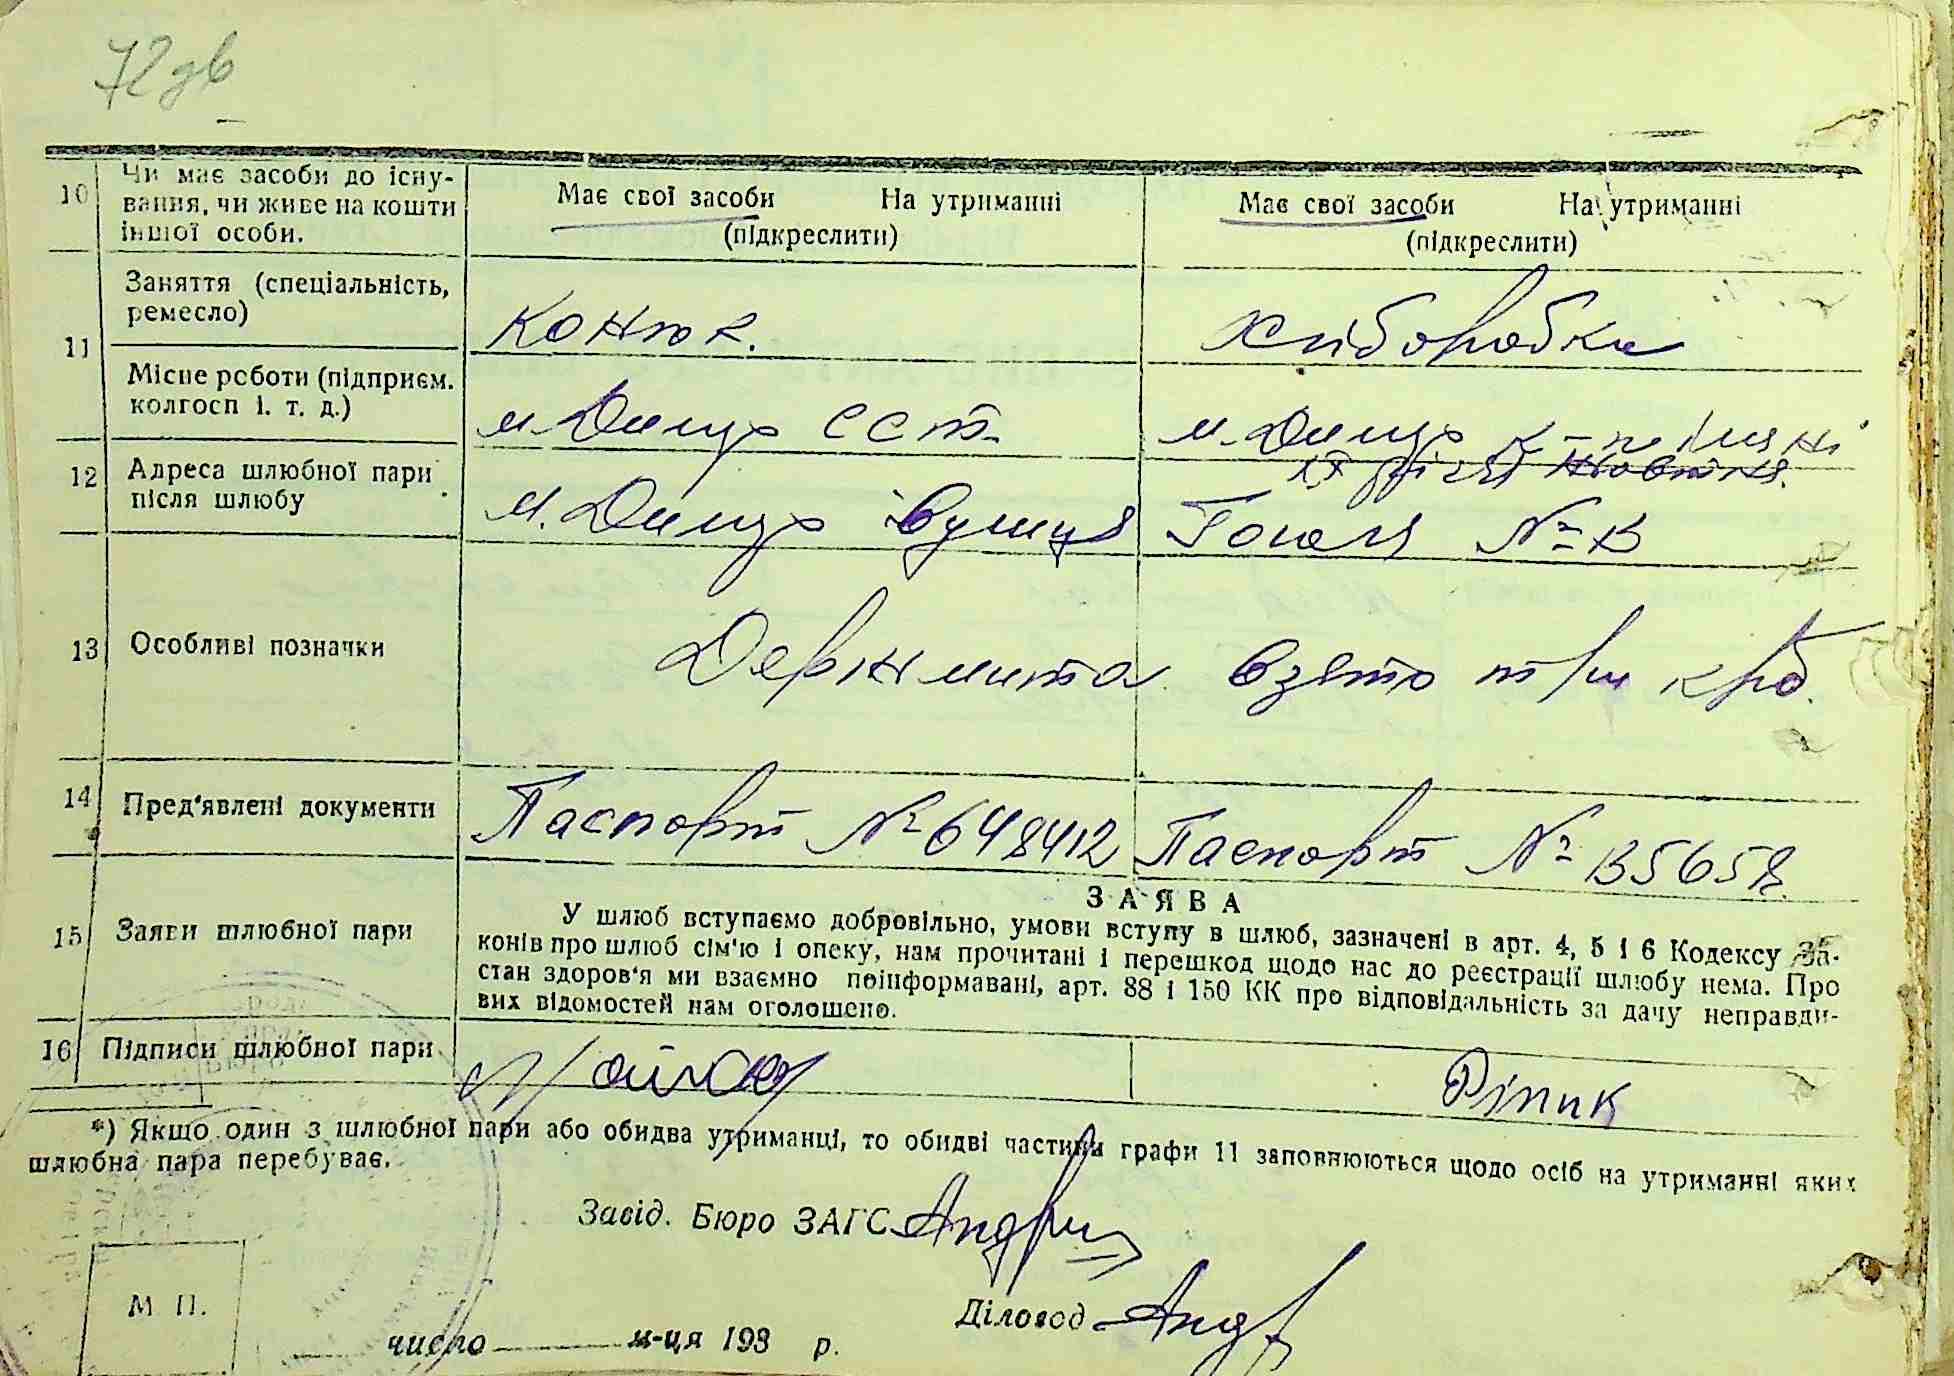 72 зв
10 Чи має засоби до існу-
вання, чи живе на кошти
іншої особи.
Має свої засоби На утриманні
(підкреслити)
Має свої засоби На утриманні
(підкреслити)
11 Заняття (спеціальність,
ремесло)
Конюх.
Хліборобка
Місце роботи (підприєм.
колгосп і. т. д.)
м.
м.
ХХ річчя Жовтня.
12 Адреса шлюбної пари
після шлюбу
м. вулиця Гоголя №
13 Особливі позначки
Держмита взято три крб.
14 Пред'явлені документи
Паспорт № 648412
Паспорт №
15 Заяви шлюбної пари
ЗАЯВА
У шлюб вступаємо добровільно, умови вступу в шлюб, зазначені в арт. 4, 5 і 6 Кодексу за-
конів про шлюб сім'ю і опеку, нам прочитані і перешкод щодо нас до реєстрації шлюбу нема. Про
стан здоров'я ми взаємно поінформавані, арт. 88 і 150 КК про відповідальність за дачу неправди-
вих відомостей нам оголошено.
16 Підписи шлюбної пари
Ріпик
*) Якщо один з шлюбної пари або обидва утриманці, то обидві частини графи 11 заповнюються щодо осіб на утриманні яких
шлюбна пара перебуває.
Завід. Бюро ЗАГС
Діловод
М П.
число м-ця 193 р.